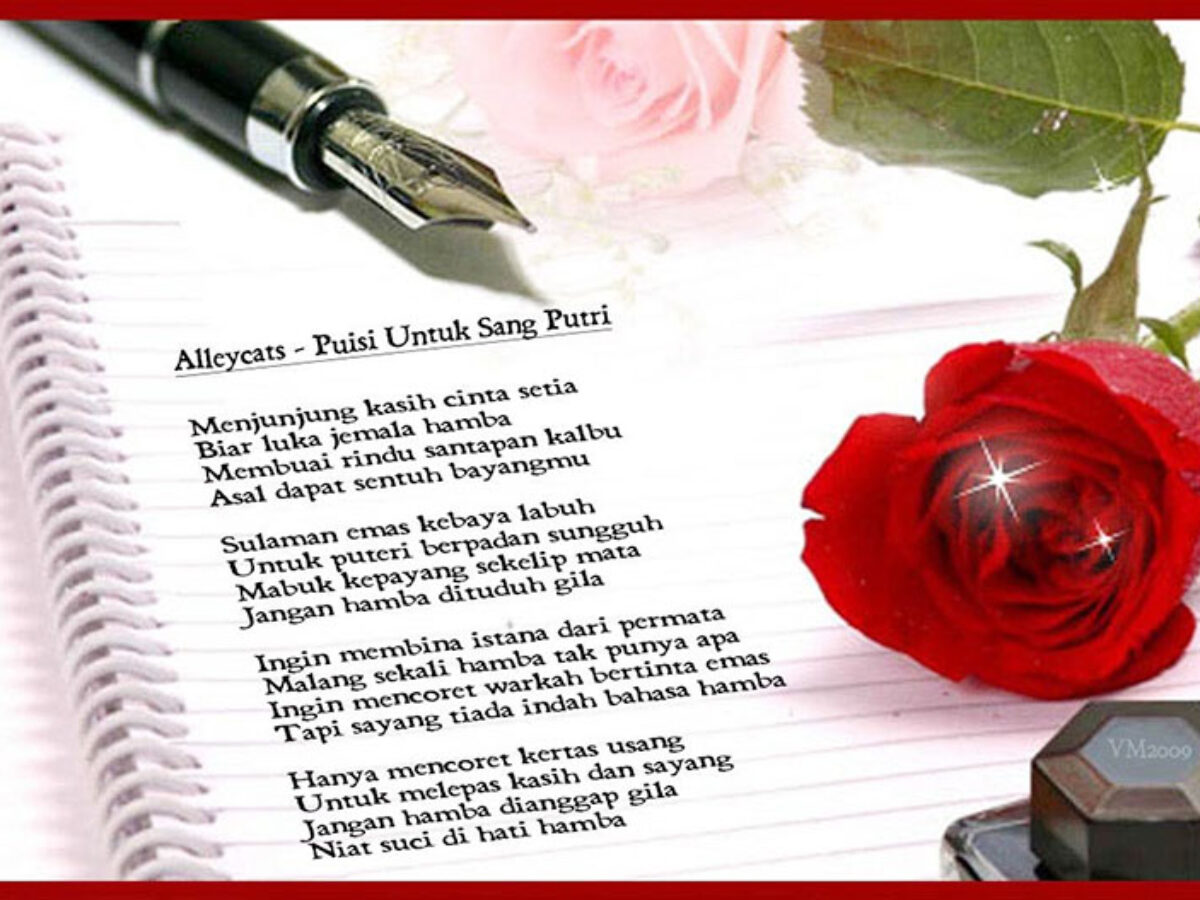 Alleycats - Puisi Untuk Sang Putri
Menjunjung kasih cinta setia
Biar luka jemala hamba
Membuai rindu santapan kalbu
Asal dapat sentuh bayangmu
Sulaman emas kebaya labuh
Untuk puteri berpadan sungguh
Mabuk kepayang sekelip mata
Jangan hamba dituduh gila
Ingin membina istana dari permata
Malang sekali hamba tak punya apa
Ingin mencoret warkah bertinta emas
Tapi sayang tiada indah bahasa hamba
Hanya mencoret kertas usang
Untuk melepas kasih dan sayang
Jangan hamba dianggap gila
Niat suci di hati hamba
VM2009